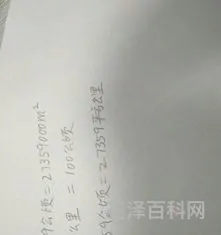 9公顷=27359000m²
公里 =100公顷
59公顷=2.7359平方公里
泽百科网